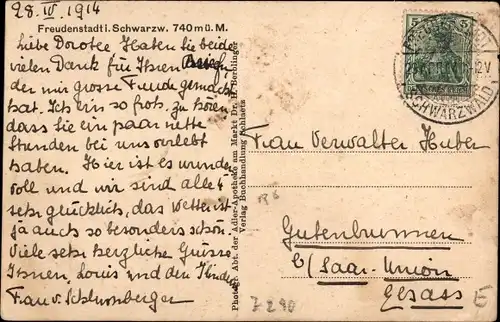 28. IV. 1914
Freudenstadt i. Schwarzw. 740 m ü. M.
Liebe Dorotee Haben Sie beide
vielen Dank für Ihren Brief
der mir grosse Freude gemacht
hat. Ich bin so froh, zu hören
dass Sie ein paar nette
Stunden bei uns verlebt
haben. Hier ist es wunder
voll und wir sind alle 4
sehr glücklich, das Wetter ist
ja auch so besonders schön.
Viele sehr herzliche Grüsse
Ihnen, Louis und den Kindern
Frau v. Schlumberger
Photogr. Abt. der Adler-Apotheke am Markt Dr. H. Berblinger
Verlag Buchhandlung Schlaetz
5
SCHWARZWALD
Frau Verwalter Huber
Gutenbrunnen
b/ Saar-Union
Elsass
7290
E